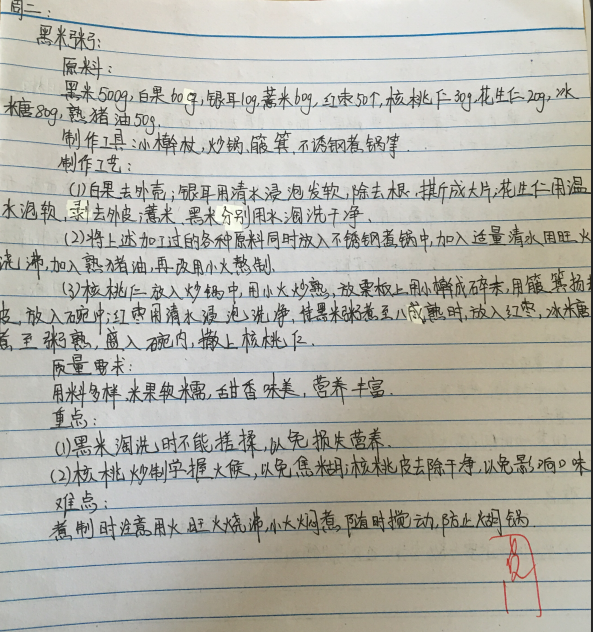 周二:
黑米粥:
原料:
黑米500g,白果60g,银耳10g,薏米60g,红枣50个,核桃仁30g,花生仁20g,冰
糖80g,熟猪油50g.
制作工具:小擀杖,炒锅,簸箕,不锈钢煮锅等.
制作工艺:
(1)白果去外壳;银耳用清水浸泡发软,除去根,掰成大片;花生仁用温
水泡软,剥去外皮;薏米、黑米分别用水淘洗干净.
(2)将上述加工过的各种原料同时放入不锈钢煮锅中,加入适量清水用旺火
烧沸,加入熟猪油,再改用小火熬制.
(3)核桃仁放入炒锅中,用小火炒熟,放案板上用小擀成碎末,用簸箕扬去
皮,放入碗中;红枣用清水浸泡洗净,待黑米粥煮至八成熟时,放入红枣,冰糖
煮至粥熟,盛入碗内,撒上核桃仁.
质量要求:
用料多样,米果软糯,甜香味美,营养丰富.
重点:
(1)黑米淘洗时不能搓揉,以免损失营养.
(2)核桃炒制掌握火候,以免焦糊;核桃皮去除干净,以免影响口味
难点:
煮制时注意用火旺火烧沸,小火焖煮,随时搅动,防止糊锅.